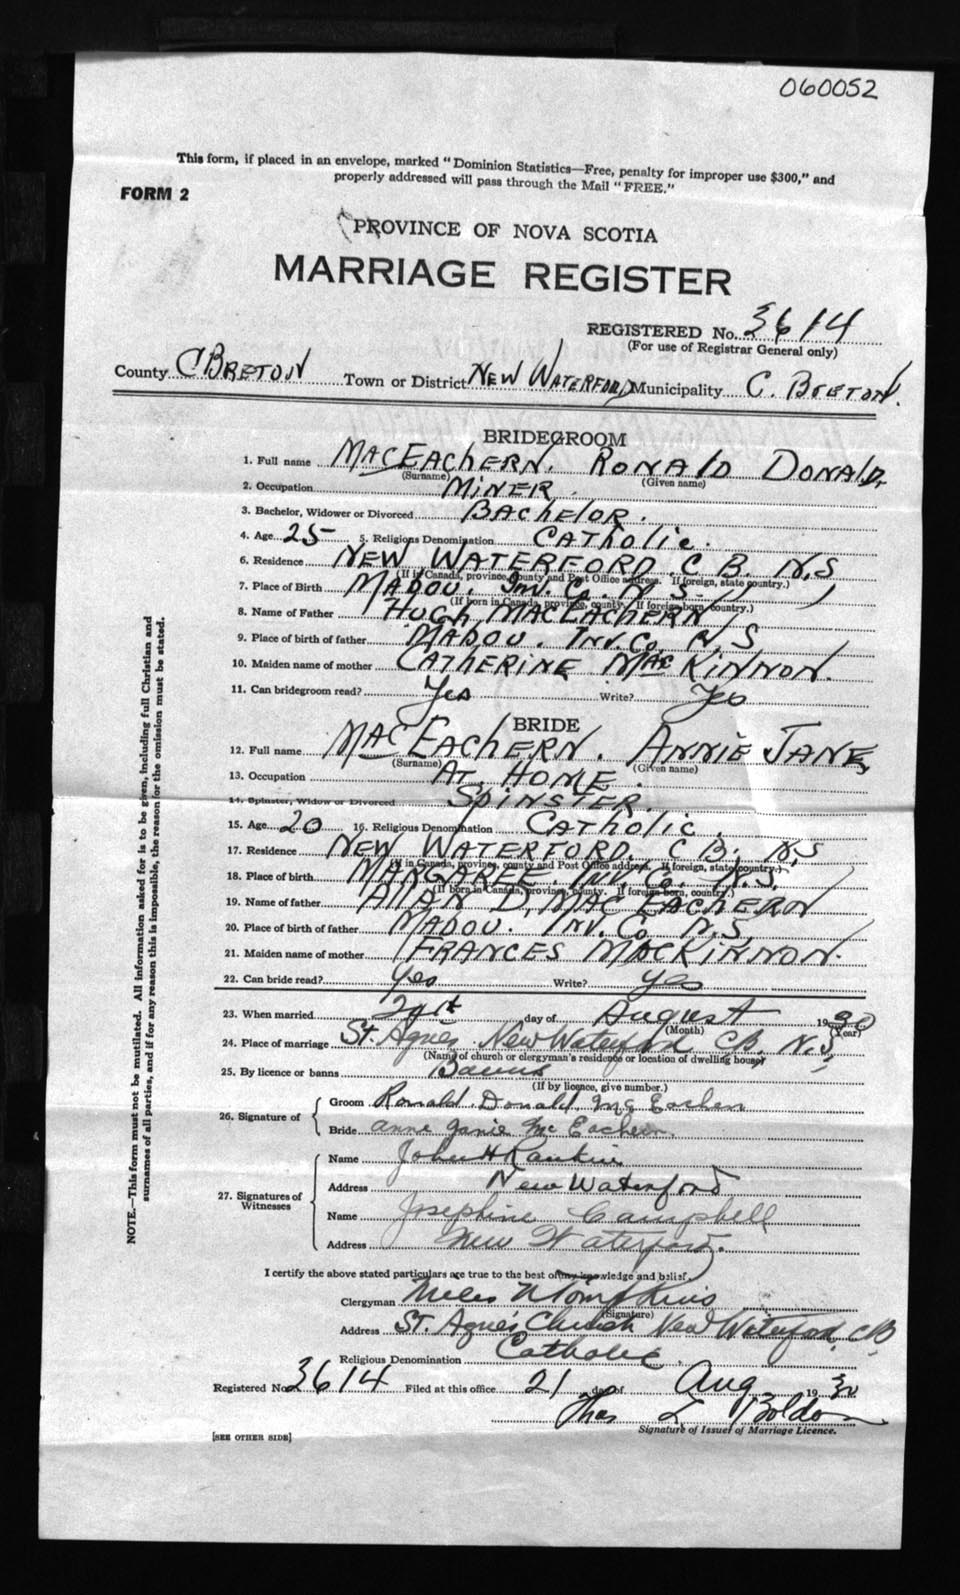 060052
This form, if placed in an envelope, marked "Dominion Statistics—Free, penalty for improper use $300," and
properly addressed will pass through the Mail "FREE."
FORM 2
PROVINCE OF NOVA SCOTIA
MARRIAGE REGISTER
REGISTERED No. 3614
(For use of Registrar General only)
County C BRETON Town or District NEW WATERFORD Municipality C. BRETON.
BRIDEGROOM
1. Full name MACEACHERN. RONALD DONALD.
(Surname) (Given name)
2. Occupation MINER.
3. Bachelor, Widower or Divorced BACHELOR.
4. Age 25 5. Religious Denomination CATHOLIC.
6. Residence NEW WATERFORD. C B. N.S
(If in Canada, province, county and Post Office address. If foreign, state country.)
7. Place of Birth MABOU. Inv. Co. N S
(If born in Canada, province, county. If foreign born, country.)
8. Name of Father HUGH MACEACHERN
9. Place of birth of father MABOU. INV. Co. N S
10. Maiden name of mother CATHERINE MACKINNON.
11. Can bridegroom read? Yes Write? Yes
BRIDE
12. Full name MACEACHERN. ANNIE JANE
(Surname) (Given name)
13. Occupation AT HOME.
14. Spinster, Widow or Divorced SPINSTER.
15. Age 20 16. Religious Denomination CATHOLIC.
17. Residence NEW WATERFORD. C B. N.S
(If in Canada, province, county and Post Office address. If foreign, state country.)
18. Place of birth MARGAREE. INV. Co. N.S.
(If born in Canada, province, county. If foreign born, country.)
19. Name of father ALLAN D. MAC EACHERN
20. Place of birth of father MABOU. INV. Co. N.S.
21. Maiden name of mother FRANCES MACKINNON.
22. Can bride read? Yes Write? Yes
23. When married day of August 1930
(Month) (Year)
24. Place of marriage St. Agnes New Waterford CB, N.S.
(Name of church or clergyman's residence or location of dwelling house)
25. By licence or banns Banns
(If by licence, give number.)
26. Signature of
Groom Ronald Donald Mc Eachen
Bride Anne Janie Mc Eachern
27. Signatures of Witnesses
Name John H Rankin
Address New Waterford
Name Josephine Campbell
Address New Waterford.
I certify the above stated particulars are true to the best of my knowledge and belief.
Clergyman Miles N Tompkins
(Signature)
Address St. Agnes Church New Waterford, CB,
Religious Denomination Catholic.
Registered No. 3614 Filed at this office 21 day of Aug 1930
Thos L Boldon
Signature of Issuer of Marriage Licence.
[SEE OTHER SIDE]
NOTE.—This form must not be mutilated. All information asked for is to be given, including full Christian and
surnames of all parties, and if for any reason this is impossible, the reason for the omission must be stated.